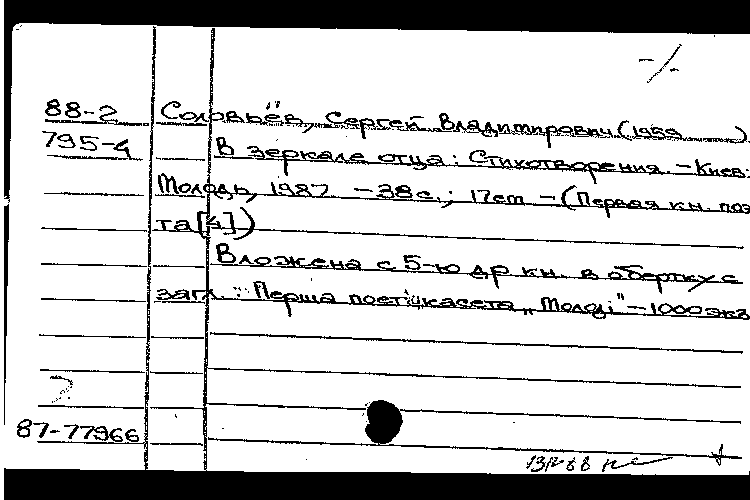 -/-
88-2 Соловьёв, Сергей Владимирович (1959 ).
795-4 В зеркале отца: Стихотворения. - Киев:
Молодь, 1987. - 38 с.; 17 cm - (Первая кн. поэ
та[4])
Вложена с 5-ю др кн. в обертку с
загл.: "Перша поетична касета „Молоді" - 1000 экз
87-77966